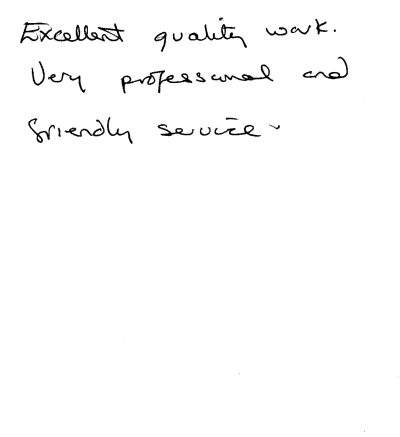 Excellent quality work.
Very professional and
friendly service